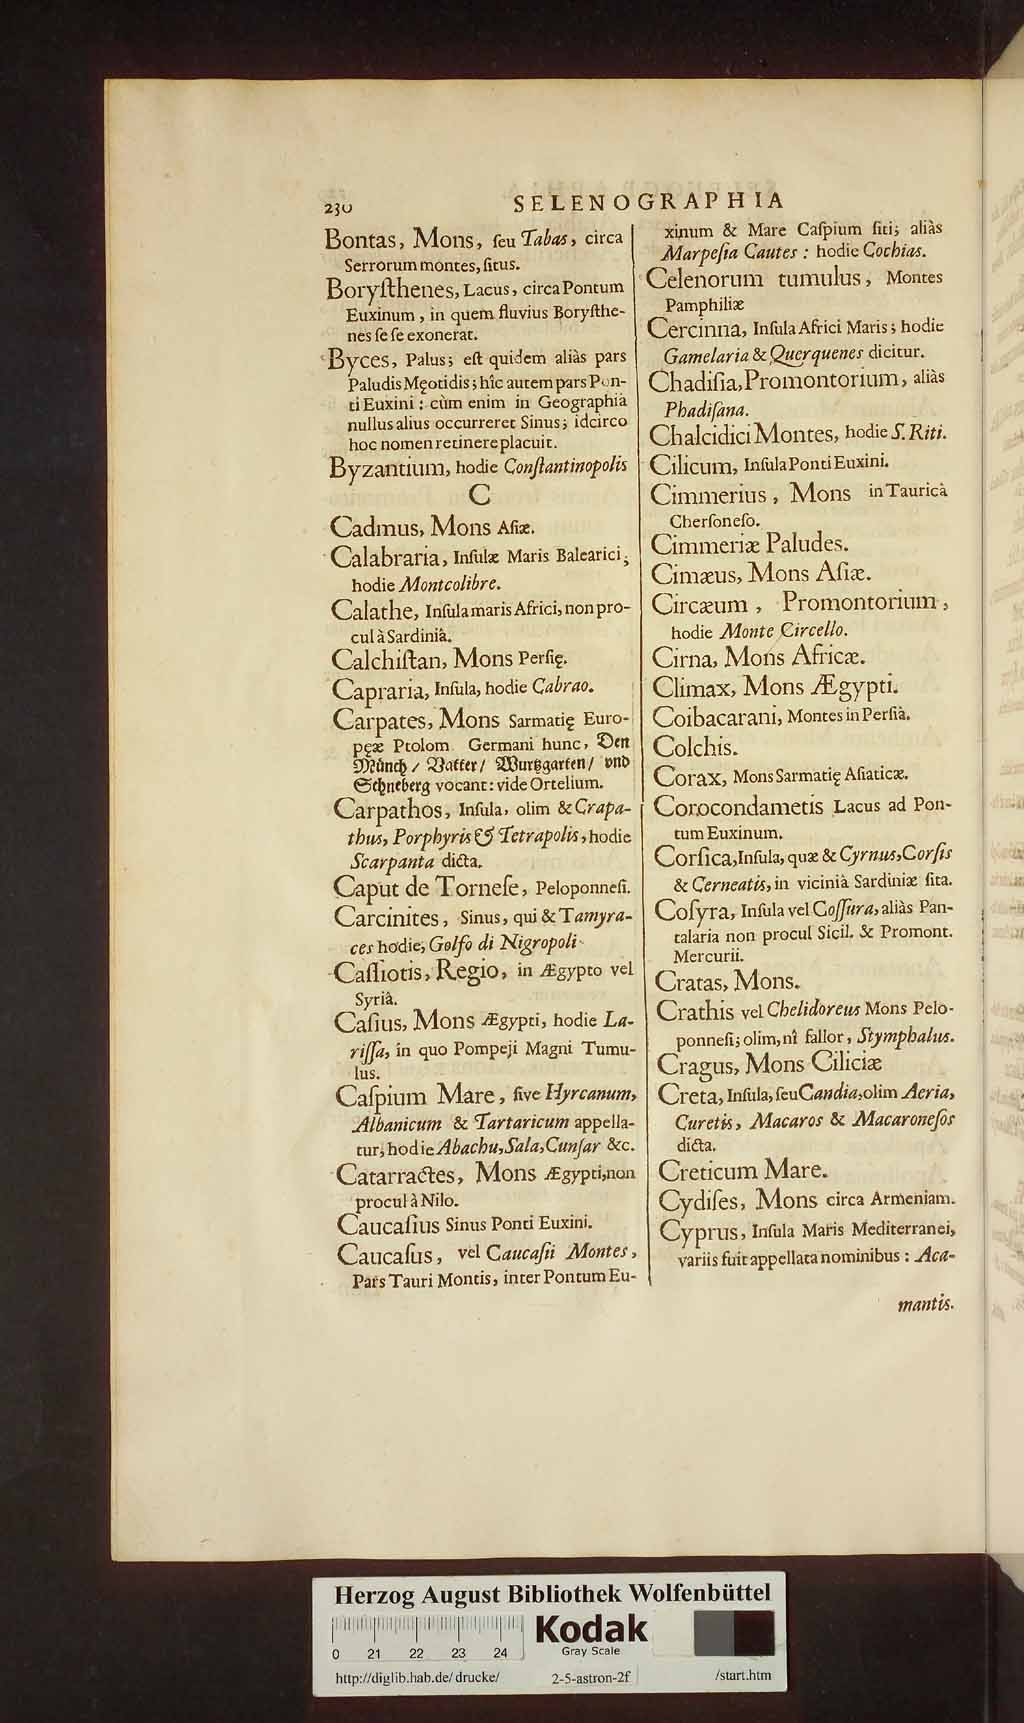 230
SELENOGRAPHIA
Bontas, Mons, ſeu Tabas, circa
Serrorum montes, ſitus.
Boryſthenes, Lacus, circa Pontum
Euxinum, in quem fluvius Boryſthe-
nes ſe ſe exonerat.
Byces, Palus; eſt quidem aliàs pars
Paludis Męotidis; hîc autem pars Pon-
ti Euxini: cùm enim in Geographiâ
nullus alius occurreret Sinus; idcirco
hoc nomen retinere placuit.
Byzantium, hodie Conſtantinopolis
C
Cadmus, Mons Aſiæ.
Calabraria, Inſulæ Maris Balearici;
hodie Montcolibre.
Calathe, Inſula maris Africi, non pro-
cul à Sardiniâ.
Calchiſtan, Mons Perſię.
Capraria, Inſula, hodie Cabrao.
Carpates, Mons Sarmatię Euro-
pęæ Ptolom. Germani hunc, Den
Münch / Vatter / Wurtzgarten / vnd
Schneberg vocant: vide Ortelium.
Carpathos, Inſula, olim & Crapa-
thus, Porphyris & Tetrapolis, hodie
Scarpanta dicta.
Caput de Torneſe, Peloponneſi.
Carcinites, Sinus, qui & Tamyra-
ces hodie, Golfo di Nigropoli.
Caſſiotis, Regio, in Ægypto vel
Syriâ.
Caſius, Mons Ægypti, hodie La-
riſſa, in quo Pompeji Magni Tumu-
lus.
Caſpium Mare, ſive Hyrcanum,
Albanicum & Tartaricum appella-
tur, hodie Abachu, Sala, Cunſar &c.
Catarractes, Mons Ægypti, non
procul à Nilo.
Caucaſius Sinus Ponti Euxini.
Caucaſus, vel Caucaſii Montes,
Pars Tauri Montis, inter Pontum Eu-
xinum & Mare Caſpium ſiti; aliàs
Marpeſia Cautes: hodie Cochias.
Celenorum tumulus, Montes
Pamphiliæ
Cercinna, Inſula Africi Maris; hodie
Gamelaria & Querquenes dicitur.
Chadiſia, Promontorium, aliàs
Phadiſana.
Chalcidici Montes, hodie S. Riti.
Cilicum, Inſula Ponti Euxini.
Cimmerius, Mons in Tauricâ
Cherſoneſo.
Cimmeriæ Paludes.
Cimæus, Mons Aſiæ.
Circæum, Promontorium,
hodie Monte Circello.
Cirna, Mons Africæ.
Climax, Mons Ægypti.
Coibacarani, Montes in Perſiâ.
Colchis.
Corax, Mons Sarmatię Aſiaticæ.
Corocondametis Lacus ad Pon-
tum Euxinum.
Corſica, Inſula, quæ & Cyrnus, Corſis
& Cerneatis, in viciniâ Sardiniæ ſita.
Coſyra, Inſula vel Coſſura, aliàs Pan-
talaria non procul Sicil. & Promont.
Mercurii.
Cratas, Mons.
Crathis vel Chelidoreus Mons Pelo-
ponneſi; olim, nî fallor, Stymphalus.
Cragus, Mons Ciliciæ
Creta, Inſula, ſeu Candia, olim Aeria,
Curetis, Macaros & Macaroneſos
dicta.
Creticum Mare.
Cydiſes, Mons circa Armeniam.
Cyprus, Inſula Maris Mediterranei,
variis fuit appellata nominibus: Aca-
mantis.
Herzog August Bibliothek Wolfenbüttel
Kodak
Gray Scale
0 21 22 23 24
http://diglib.hab.de/drucke/ 2-5-astron-2f /start.htm